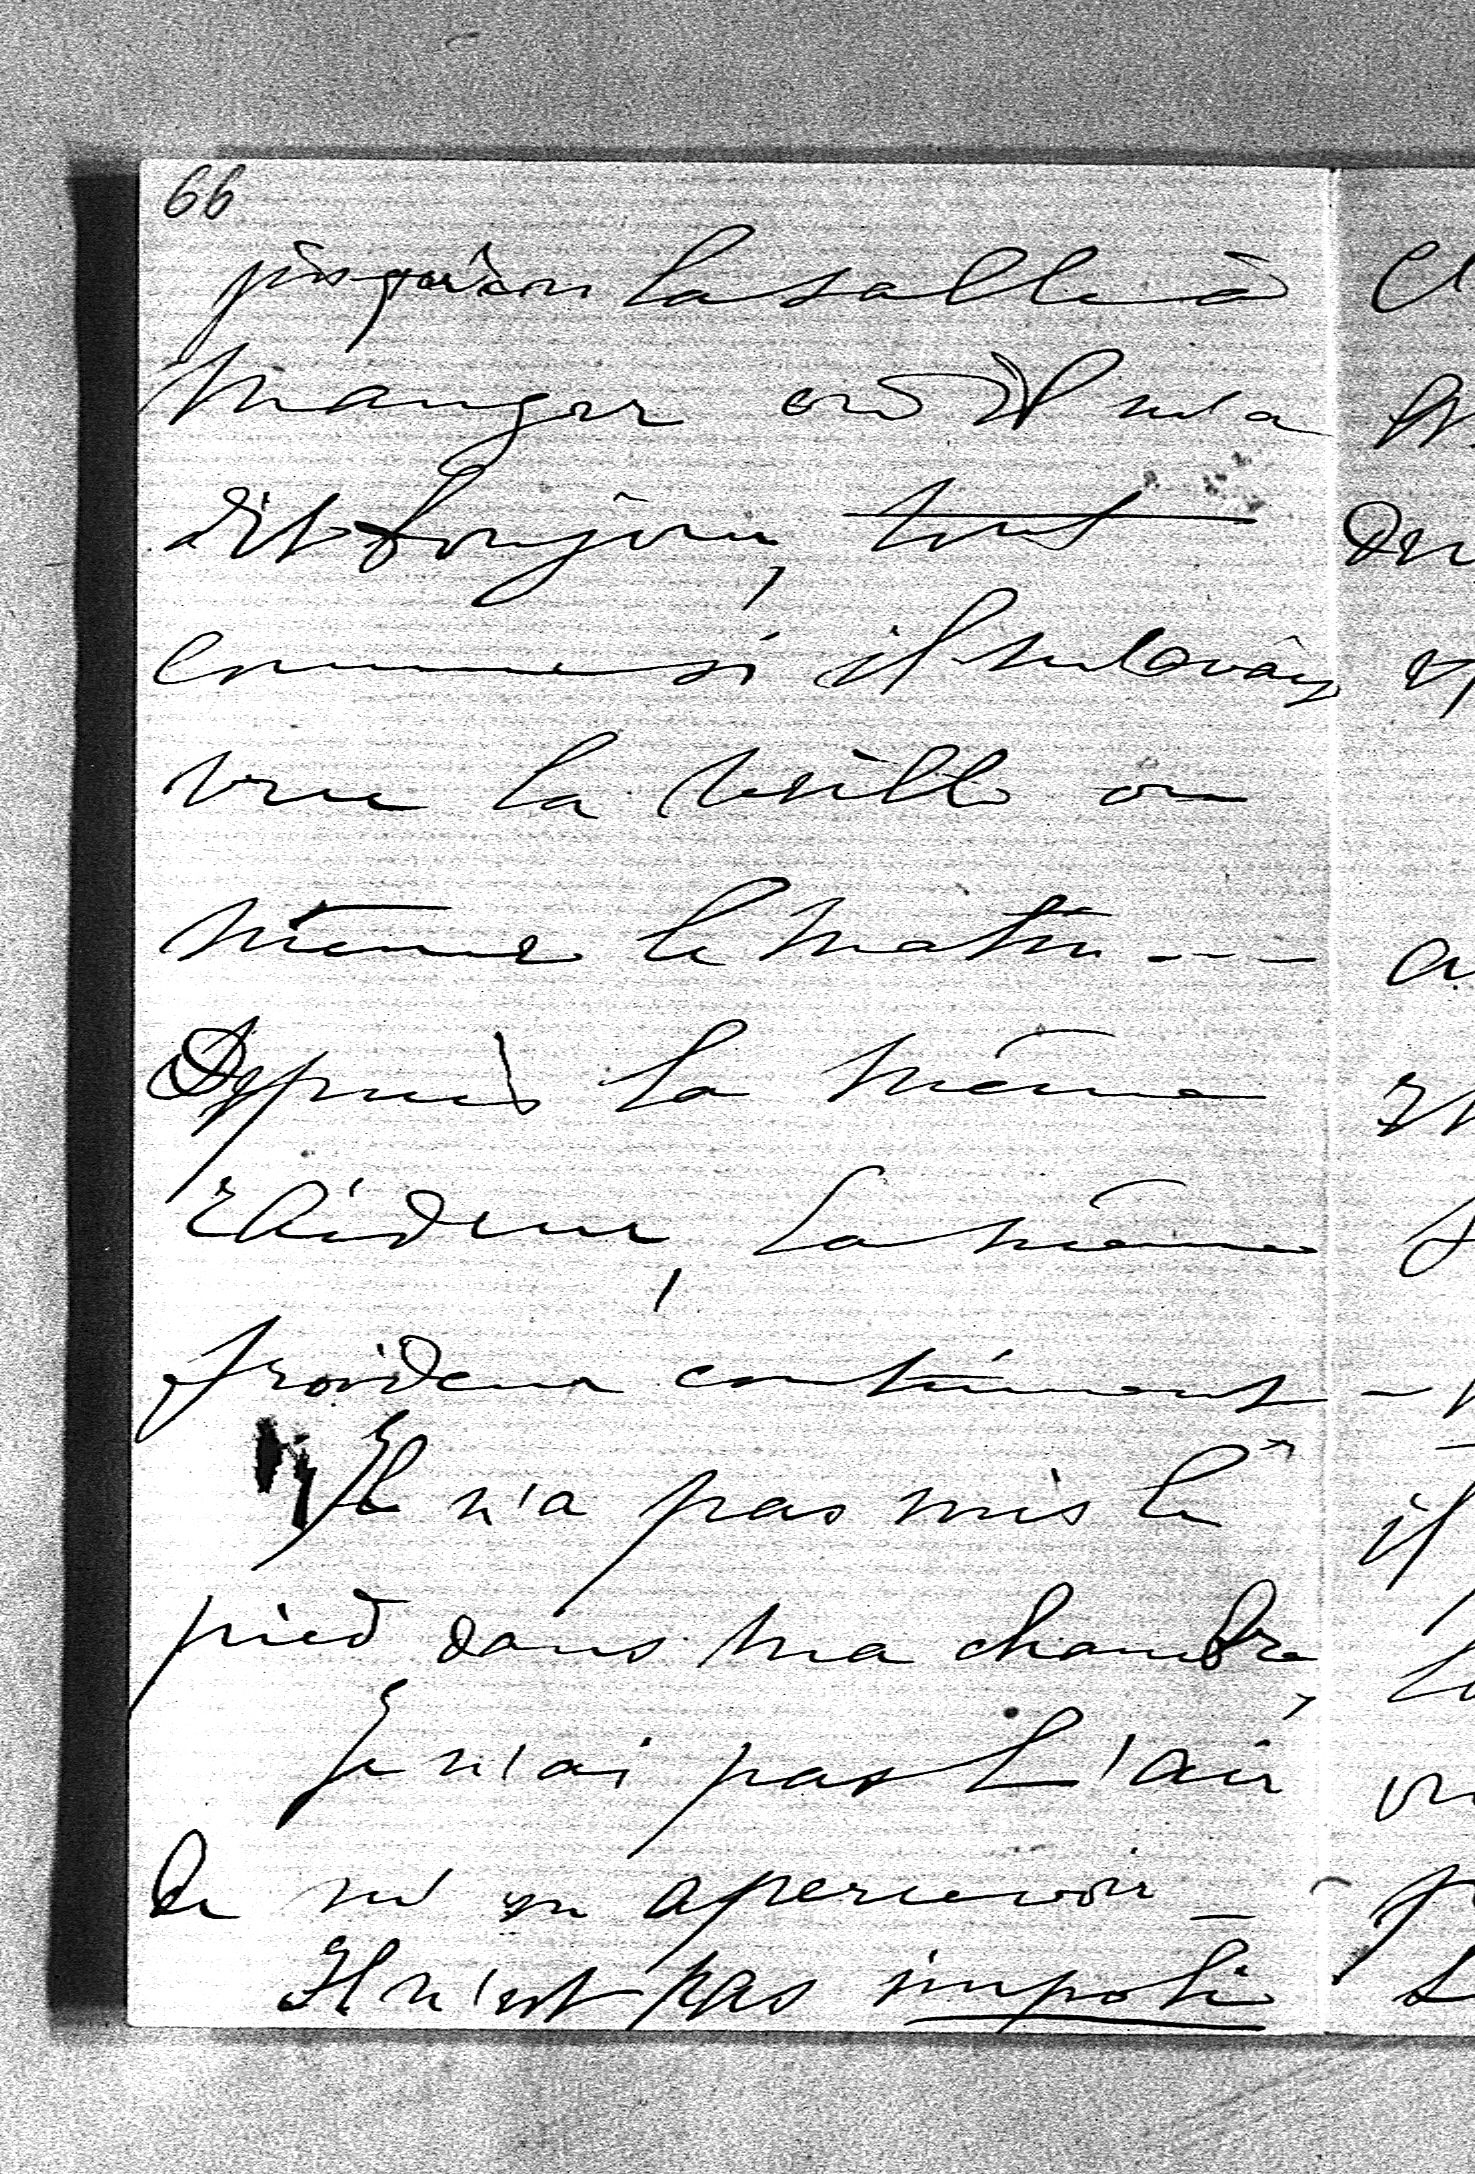 66
jusqu'en la salle à
manger où il m'a
dit bonjour, tout
comme si il m'avait
vue la veille ou
même le matin ---
Depuis la même
raideur, la même
froideur continuent -
Il n'a pas mis le
pied dans ma chambre,
Je n'ai pas l'air
de m'en apercevoir -
Il n'est pas impoli